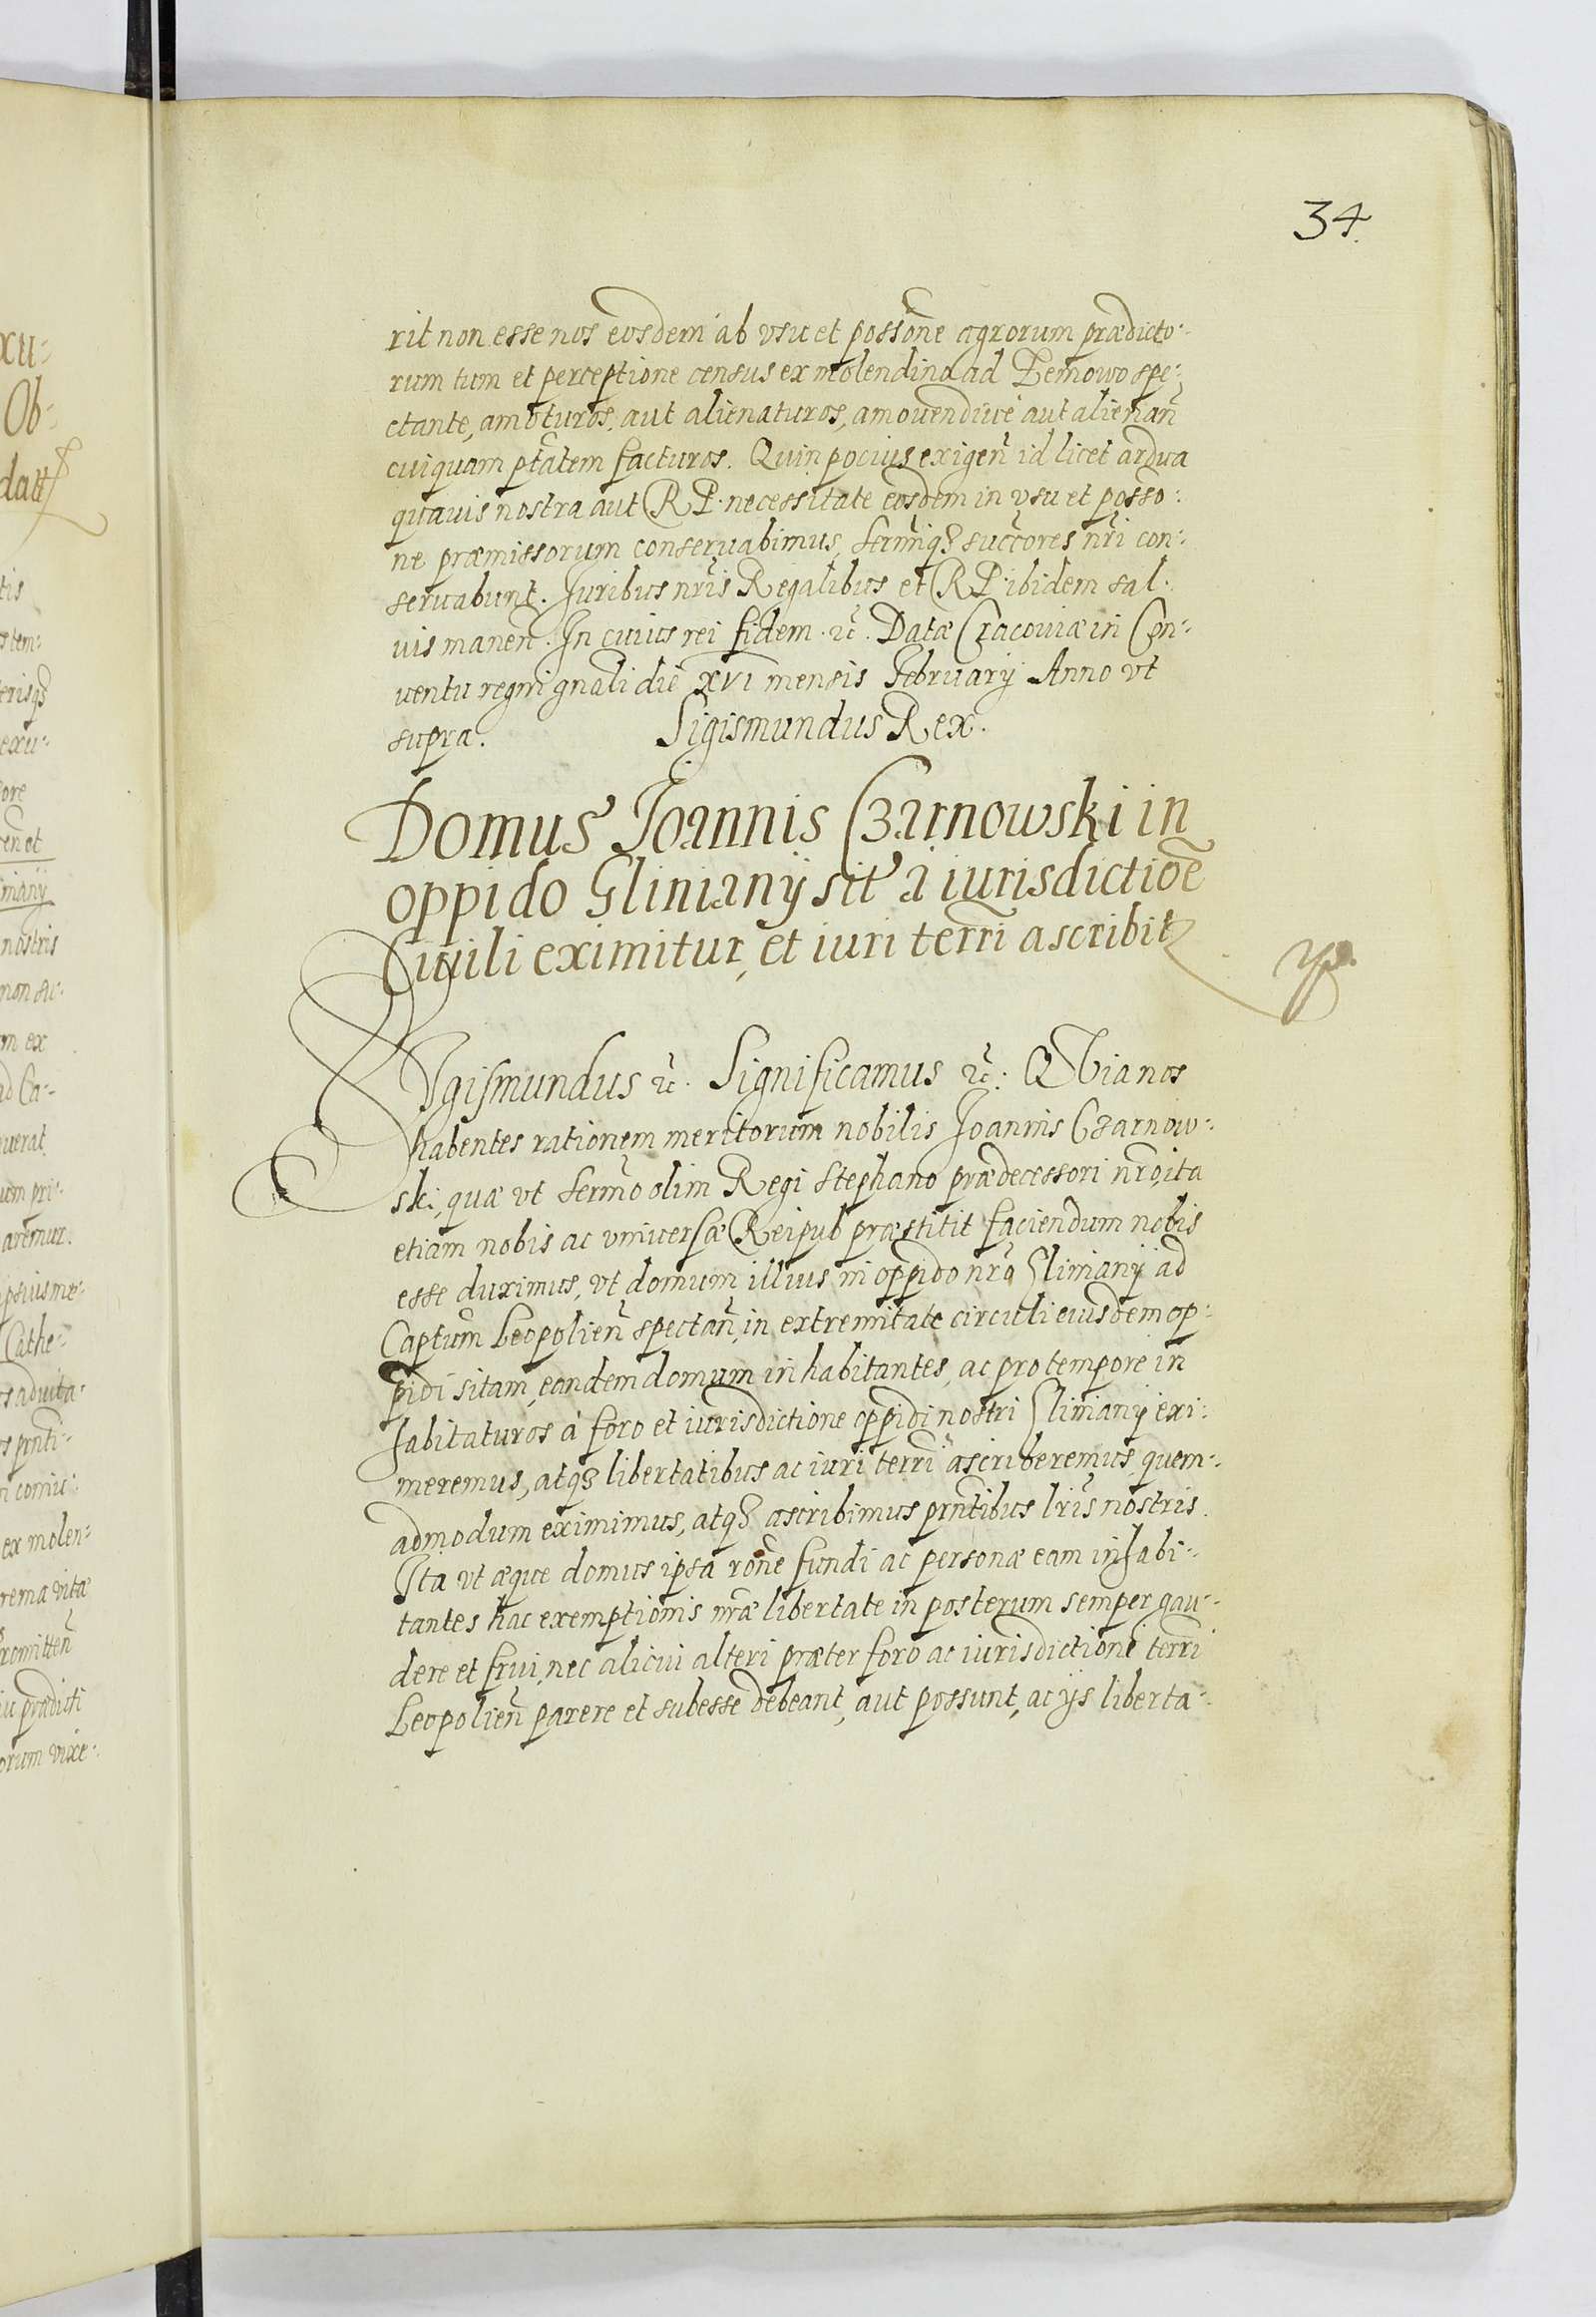 34.
rit non esse nos eosdem ab vsu et possõne agrorum prædicto-
rum tum et perceptione census ex molendino ad Bemowo spe-
ctante, amoturos, aut alienaturos, amouendiue aut alienañ
cuiquam ptãtem facturos. Quin pocius exigeñ id licet ardua
quauis nostra aut RP. necessitate eosdem in vsu et posso-
ne præmissorum conseruabimus, Sermiq3 succores nri con-
seruabunt. Iuribus nris Regalibus et RP. ibidem sal-
uis maneñ. In cuius rei fidem ꝛc. Datæ Cracouiæ in Con-
uentu regni gnali die XVI mensis February Anno vt
supra. Sigismundus Rex.
Domus Ioannis Czarnowski in
oppido Glinianÿ sit a iurisdictioẽ
Ciuili eximitur, et iuri terri ascribit
Sigismundus ꝛc. Significamus ꝛc. Quia nos
habentes rationem meritorum nobilis Joannis Czarnow-
ski, quæ vt Sermo olim Regi Stephano prædecessori nro, ita
etiam nobis ac vniuersæ Reipub præstitit faciendum nobis
esse duximus, vt domum illius in oppido nro Glinianÿ ad
Captum Leopolieñ spectañ, in extremitate circuli eiusdem op-
pidi sitam, eandem domum inhabitantes, ac pro tempore in
habitaturos à foro et iurisdictione oppidi nostri Glinianÿ exi-
meremus, atq3 libertatibus ac iuri terri ascriberemus, quem-
admodum eximimus, atq3 ascribimus prntibus lris nostris.
Ita vt æque domus ipsa rone fundi ac personæ eam inhabi-
tantes hac exemptionis nræ libertate in posterum semper gau-
dere et frui, nec alicui alteri præter foro ac iurisdictioni terri
Leopolieñ parere et subesse debeant, aut possunt, ac ijs liberta-